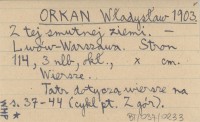 ORKAN Władysław 1903.
Z tej smutnej ziemi. –
Lwów-Warszawa. Stron
114, 3 nlb, okł., x cm.
Wiersze.
Tatr dotyczą wiersze na
s. 37-44 (cykl pt. Z gór).
WMP